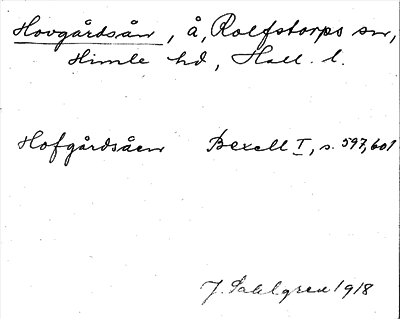 Hovgårdsån, å, Rolfstorps sn,
Himle hd, Hall. l.
Hofgårdsåen Bexell I, s. 597, 601
J. Sahlgren 1918